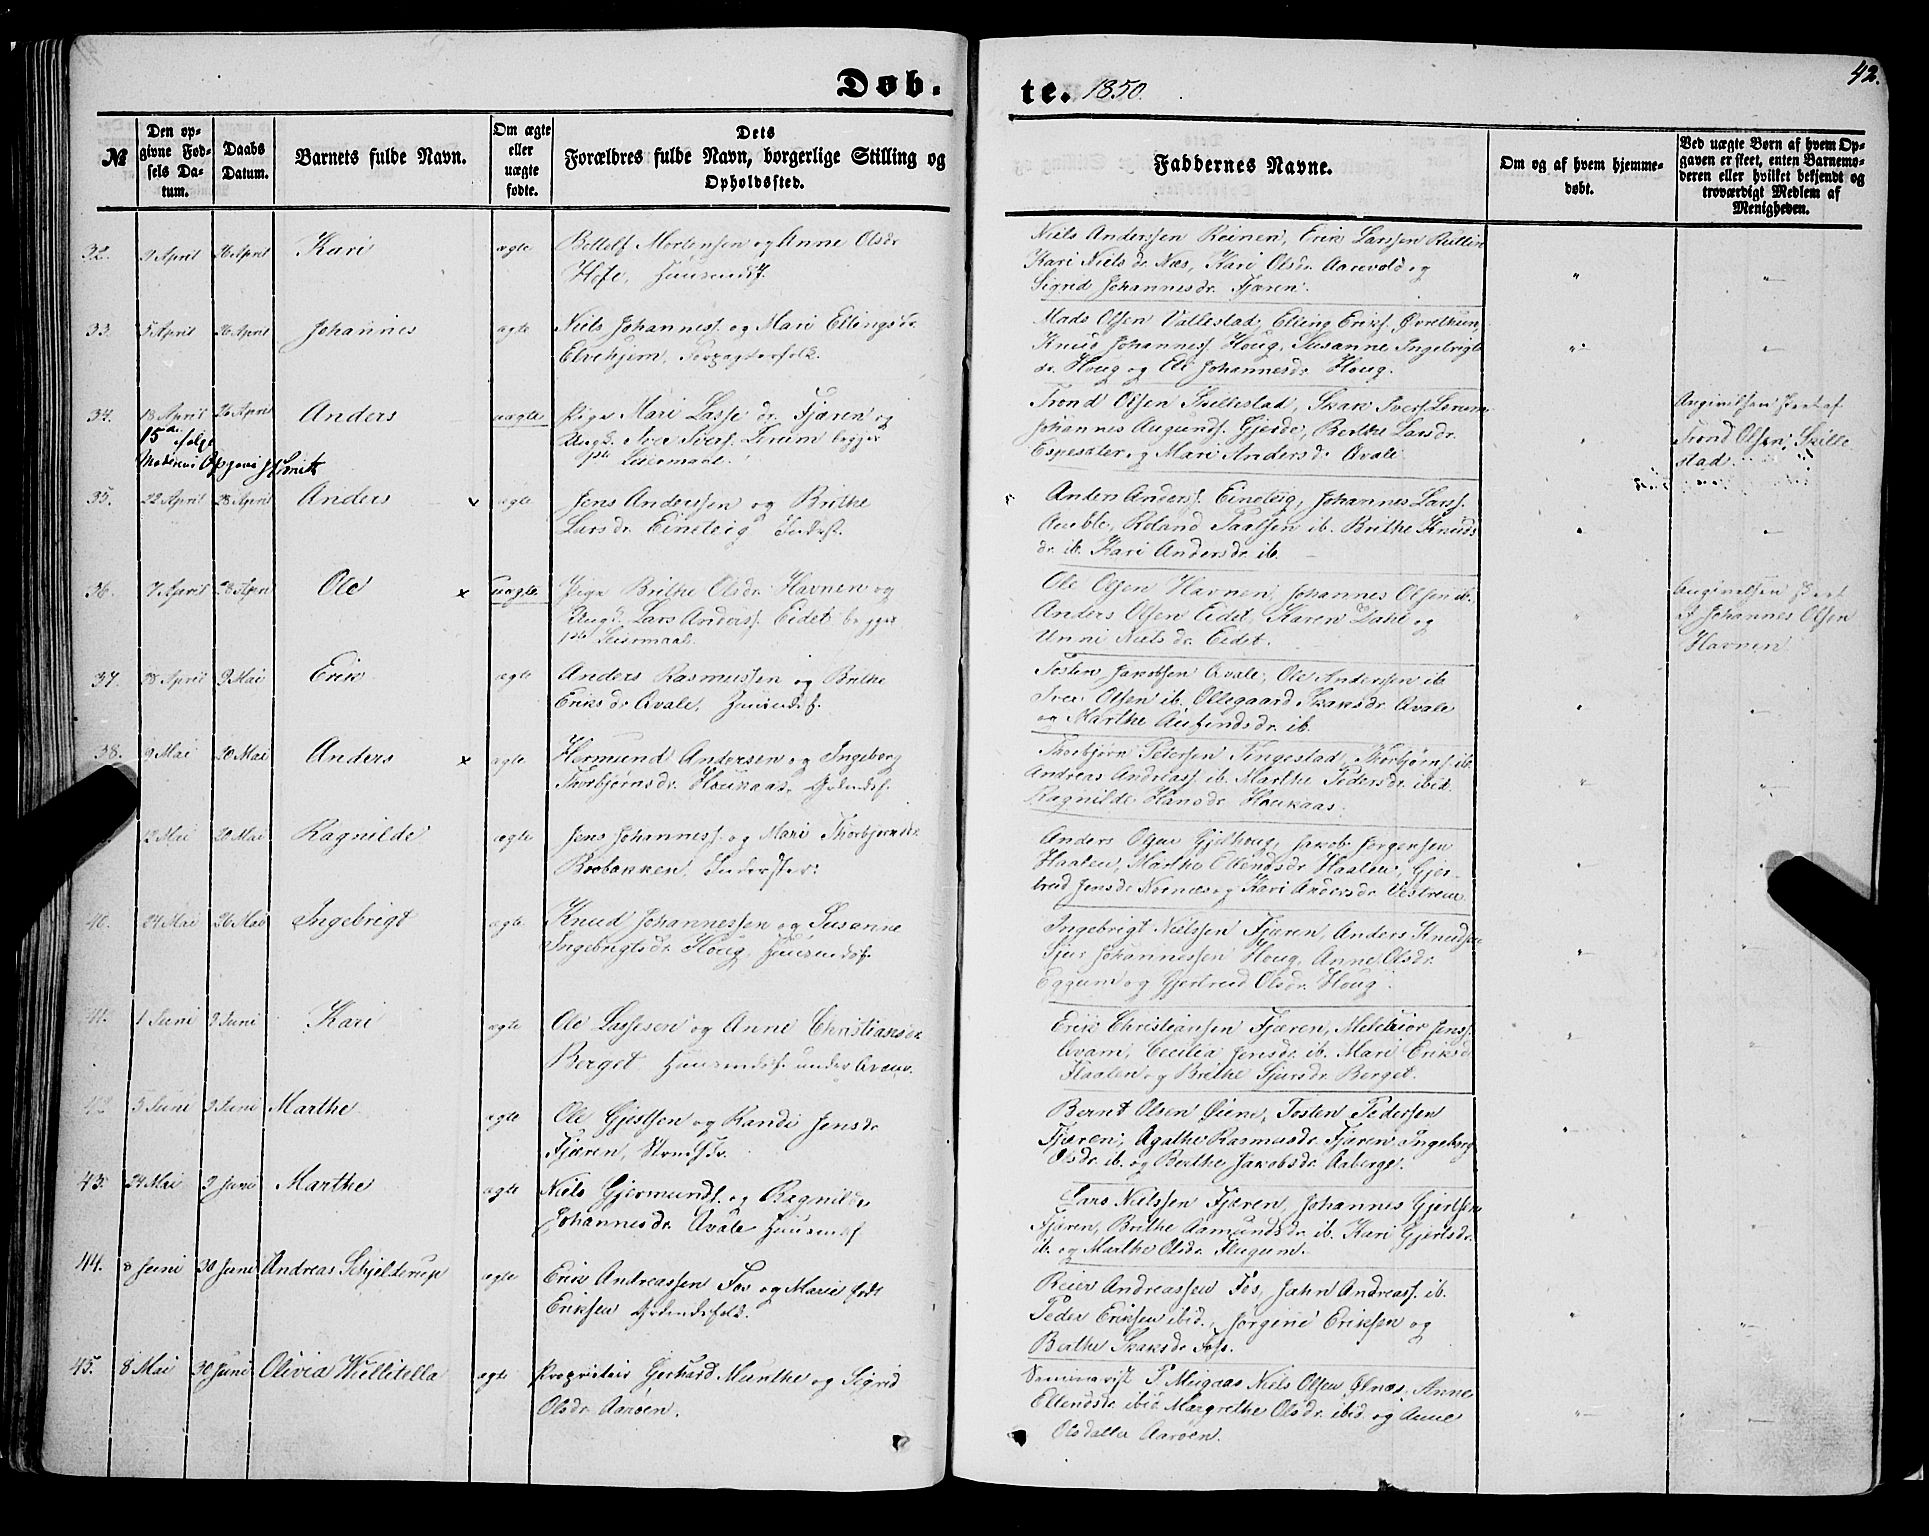 Døb.
te. 1850.
42.
№
Den op-
givne Fød-
sels Da-
tum.
Daabs
Datum.
Barnets fulde Navn.
Om ægte
eller
uægte
fødte.
Dets
Forældres fulde Navn, borgerlige Stilling og
Opholdssted.
Faddernes Navne.
Om og af hvem hjemme-
døbt.
Ved uægte Børn af hvem Op-
gaven er skeet, enten Barnemo-
deren eller hvilket bekjendt og
troværdigt Medlem af
Menigheden.
32. 9 April 26 April Kari ægte Bottolf Mortensen og Anne Olsdr
Niels Anderssen Reinen, Erik Larssen
Kari Nielsdr. Næs, Kari Olsdr. Aarevold og
Sigrid Johannesdr. Fjæren.
33. 5 April 26 April Johannes ægte Niels Johanness. og Mari Ellingsdr
Elvehjem, Forpagterfolk.
Mads Olsen Vallestad, Elling Eriks. Øvrethun,
Knud Johanness. Houg, Susanne Ingebrigts
dr. Houg og Eli Johannesdr. Houg.
34. 13 April 26 April Anders uægte Pige Mari Lassedr. Fjæren og
Ungk. Iver Ivers. Lerum begges
1ste Leiermaal.
15de ifølge
Moderens Opgave
Trond Olsen Skillestad, Skak Ivers. Lerum
Johannes Augunds. Gjerde, Berthe Larsdr.
Espesæter og Mari Andersdr. Qvale
Angivelsen skeet af
Trond Olsen Skille
stad.
35. 22 April 28 April Anders × ægte Jens Anderssen og Brithe
Larsdr. Eineteig Inderst.
Anders Anderss. Eineteig, Johannes Larss.
Amble, Roland ib. Brithe Knuds
dr. ib. Kari Andersdr. ib.
36. 7 April 28 April Ole × uægte Pige Brithe Olsdr. Havnen og
Ungk. Lars Anderss. Eidet begges
1ste Leiermaal.
Ole Olsen Havnen, Johannes Olsen ib.
Anders Olsen Eidet, Karen Dahl og
Unni Nielsdr. Eidet.
Angivelsen skeet
af Johannes Olsen
Havnen
37. 28 April 9 Mai Erik ægte Anders Rasmussen og Brithe
Eriksdr Qvale, Huusmdsf.
Tosten Jakobsen Qvale, Ole Anderssen ib.
Iver Olsen ib. Ollegaard Skaksdr. Qvale
og Marthe Aufindsdr. ib.
38. 9 Mai 20 Mai Anders × ægte Hermund Andersen og Ingeborg
Thorbjørnsdr. Houkaas, Gdmdsf.
Thorbjørn Petersen Tingestad, Thorbjørns. ib.
Andreas Andreass. ib. Marthe Pedersdr. ibid.
Ragnilde Hansdr. Houkaas.
12 Mai 20 Mai Ragnilde ægte Jens Johanness. og Mari Thorbjørnsdr.
Brobakken, Inderster.
Anders Olsen Gjelhoug, Jakob Jørgensen
Haaten, Marthe Ellendsdr. Haaten, Gjer-
trud Jensdr Nornæs og Kari Andersdr. Vestrum.
40. 24 Mai 26 Mai Ingebrigt ægte Knud Johannessen og Susanne
Ingebrigtsdr. Houg, Huusmdsf.
Ingebrigt Nielssen Fjæren, Anders Knudsen
Sjur Johannessen Houg, Anne Olsdr.
Eggum og Gjertrud Olsdr. Houg.
41. 1 Juni 9 Juni Kari ægte Ole Lassesen og Anne Christiansdr.
Berget Huusmdsf. under Qvam.
Erik Christiansen Fjæren, Melchior Jenss.
Qvam, Cecilia Jensdr. ib. Mari Eriksdr
Flaaten og Brithe Sjursdr. Berget.
42 3 Juni 9 Juni Marthe ægte Ole Gjertsen og Randi Jensdr
Fjæren, Strands.
Bernt Olsen Øien, Tosten Pedersen
Fjæren, Agathe Rasmusdr. Fjæren Ingeborg
Olsdr. ib. og Berthe Jakobsdr. Aaberge.
43. 24 Mai 9 Juni Marthe ægte Niels Gjermunds. og Ragnilde
Johannesdr. Qvale Huusmdsf.
Lars Nielssen Fjæren, Johannes Gjertsen
Fjæren, Brithe Aamundsdr. ib. Kari Gjertsdr.
ib. og Marthe Olsdr. Flugum.
44. 8 Juni 30 Juni Andreas Schjelderup ægte Erik Andreassen Fos og Marie født
Eriksen Gdmdsfolk.
Reier Andreassen Fos, John Andreass. ib.
Peder Eriksen ibid., Jørgine Eriksen og
Berthe Skaksdr Foss.
45. 8 Mai 30 Juni Olivia Willitella ægte Proprietair Gerhard Munthe og Sigrid
Olsdr. Aarøen.
Seminarist P Meigaas Niels Olsen Ølnæs, Anne
Ellendsdr. ibid Margrethe Olsdr. ibid og Anne
Olsdatter Aarøen.